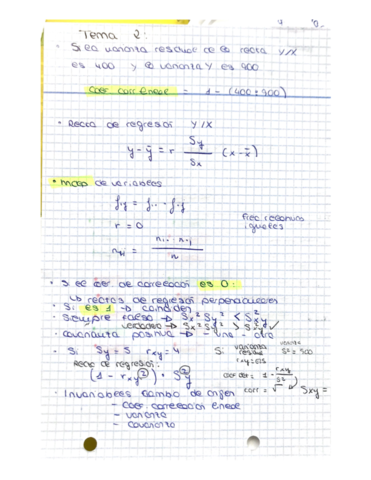 Tema 2:
• Si la varianza residual de la recta Y/X
es 400 y la varianza Y es 900
Coef corr lineal = 1 - (400 : 900)
• Recta de regresión Y/X
y - ȳ = r Sy/Sx (x - x̄)
• Indep de variables
fij = fi· · f·j
r = 0
nij = ni· · n·j / n
frec relativas
iguales
• Si el coef. de correlación es 0:
↳ rectas de regresión perpendiculares
• Si es 1 → coinciden
• Siempre falso → Sx² Sy² < S²xy
verdadero → Sx² Sy² > S²xy ✓
• Covarianza positiva → una otra
• Si Sy = 5 rxy = 4
Recta de regresión:
(1 - rxy²) · Sy²
Si varianza residual
varianza S² = 900
coef det = 1 -
corr = √ → Sxy =
• Invariables cambio de origen
- Coef. correlación lineal
- varianza
- Covarianza